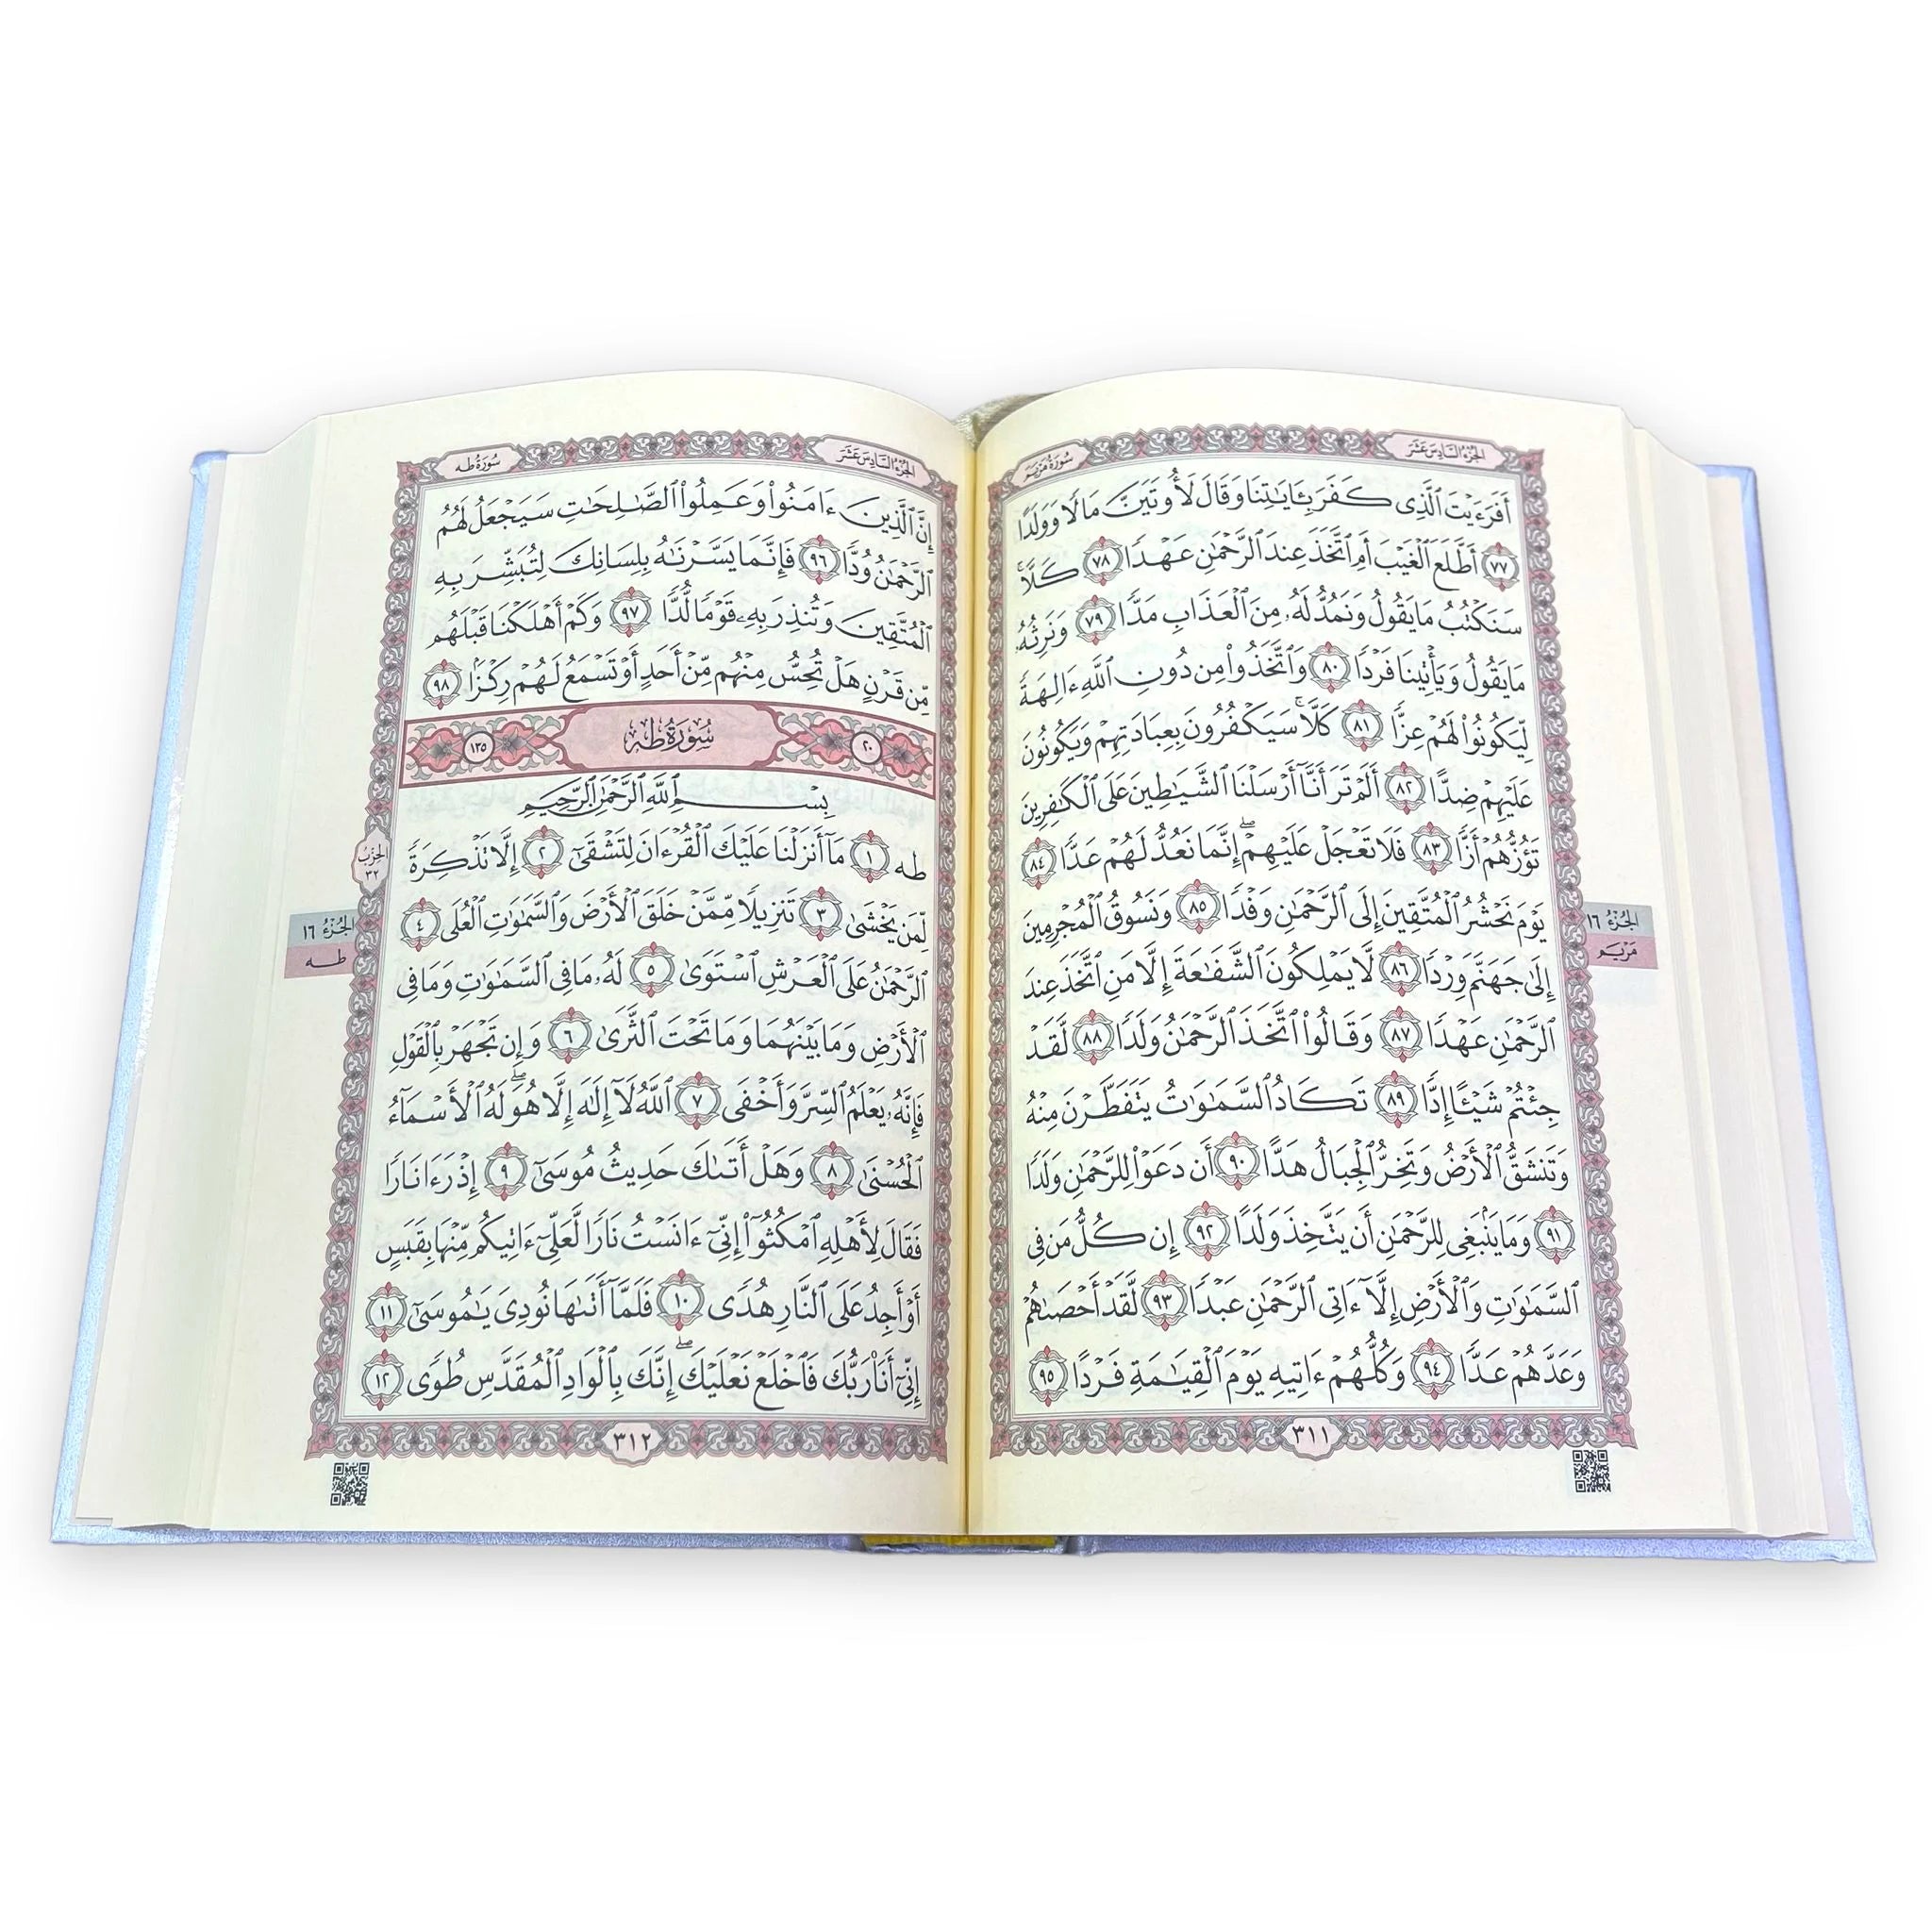 الجزء السادس عشر
سورة مريم
أَفَرَءَيْتَ ٱلَّذِى كَفَرَ بِـَٔايَـٰتِنَا وَقَالَ لَأُوتَيَنَّ مَالًا وَوَلَدًا
﴿٧٧﴾ أَطَّلَعَ ٱلْغَيْبَ أَمِ ٱتَّخَذَ عِندَ ٱلرَّحْمَـٰنِ عَهْدًا ﴿٧٨﴾ كَلَّا ۚ
سَنَكْتُبُ مَا يَقُولُ وَنَمُدُّ لَهُۥ مِنَ ٱلْعَذَابِ مَدًّا ﴿٧٩﴾ وَنَرِثُهُۥ
مَا يَقُولُ وَيَأْتِينَا فَرْدًا ﴿٨٠﴾ وَٱتَّخَذُوا۟ مِن دُونِ ٱللَّهِ ءَالِهَةً
لِّيَكُونُوا۟ لَهُمْ عِزًّا ﴿٨١﴾ كَلَّا ۚ سَيَكْفُرُونَ بِعِبَادَتِهِمْ وَيَكُونُونَ
عَلَيْهِمْ ضِدًّا ﴿٨٢﴾ أَلَمْ تَرَ أَنَّآ أَرْسَلْنَا ٱلشَّيَـٰطِينَ عَلَى ٱلْكَـٰفِرِينَ
تَؤُزُّهُمْ أَزًّا ﴿٨٣﴾ فَلَا تَعْجَلْ عَلَيْهِمْ ۖ إِنَّمَا نَعُدُّ لَهُمْ عَدًّا ﴿٨٤﴾
يَوْمَ نَحْشُرُ ٱلْمُتَّقِينَ إِلَى ٱلرَّحْمَـٰنِ وَفْدًا ﴿٨٥﴾ وَنَسُوقُ ٱلْمُجْرِمِينَ
إِلَىٰ جَهَنَّمَ وِرْدًا ﴿٨٦﴾ لَّا يَمْلِكُونَ ٱلشَّفَـٰعَةَ إِلَّا مَنِ ٱتَّخَذَ عِندَ
ٱلرَّحْمَـٰنِ عَهْدًا ﴿٨٧﴾ وَقَالُوا۟ ٱتَّخَذَ ٱلرَّحْمَـٰنُ وَلَدًا ﴿٨٨﴾ لَّقَدْ
جِئْتُمْ شَيْـًٔا إِدًّا ﴿٨٩﴾ تَكَادُ ٱلسَّمَـٰوَٰتُ يَتَفَطَّرْنَ مِنْهُ
وَتَنشَقُّ ٱلْأَرْضُ وَتَخِرُّ ٱلْجِبَالُ هَدًّا ﴿٩٠﴾ أَن دَعَوْا۟ لِلرَّحْمَـٰنِ وَلَدًا
﴿٩١﴾ وَمَا يَنۢبَغِى لِلرَّحْمَـٰنِ أَن يَتَّخِذَ وَلَدًا ﴿٩٢﴾ إِن كُلُّ مَن فِى
ٱلسَّمَـٰوَٰتِ وَٱلْأَرْضِ إِلَّآ ءَاتِى ٱلرَّحْمَـٰنِ عَبْدًا ﴿٩٣﴾ لَّقَدْ أَحْصَىٰهُمْ
وَعَدَّهُمْ عَدًّا ﴿٩٤﴾ وَكُلُّهُمْ ءَاتِيهِ يَوْمَ ٱلْقِيَـٰمَةِ فَرْدًا ﴿٩٥﴾
٣١١
الجزء ١٦
مريم
الجزء السادس عشر
سورة طه
إِنَّ ٱلَّذِينَ ءَامَنُوا۟ وَعَمِلُوا۟ ٱلصَّـٰلِحَـٰتِ سَيَجْعَلُ لَهُمُ
ٱلرَّحْمَـٰنُ وُدًّا ﴿٩٦﴾ فَإِنَّمَا يَسَّرْنَـٰهُ بِلِسَانِكَ لِتُبَشِّرَ بِهِ
ٱلْمُتَّقِينَ وَتُنذِرَ بِهِۦ قَوْمًا لُّدًّا ﴿٩٧﴾ وَكَمْ أَهْلَكْنَا قَبْلَهُم
مِّن قَرْنٍ هَلْ تُحِسُّ مِنْهُم مِّنْ أَحَدٍ أَوْ تَسْمَعُ لَهُمْ رِكْزًۢا ﴿٩٨﴾
٢٠ سورة طه ١٣٥
بِسْمِ ٱللَّهِ ٱلرَّحْمَـٰنِ ٱلرَّحِيمِ
طه ﴿١﴾ مَآ أَنزَلْنَا عَلَيْكَ ٱلْقُرْءَانَ لِتَشْقَىٰٓ ﴿٢﴾ إِلَّا تَذْكِرَةً
لِّمَن يَخْشَىٰ ﴿٣﴾ تَنزِيلًا مِّمَّنْ خَلَقَ ٱلْأَرْضَ وَٱلسَّمَـٰوَٰتِ ٱلْعُلَى ﴿٤﴾
ٱلرَّحْمَـٰنُ عَلَى ٱلْعَرْشِ ٱسْتَوَىٰ ﴿٥﴾ لَهُۥ مَا فِى ٱلسَّمَـٰوَٰتِ وَمَا فِى
ٱلْأَرْضِ وَمَا بَيْنَهُمَا وَمَا تَحْتَ ٱلثَّرَىٰ ﴿٦﴾ وَإِن تَجْهَرْ بِٱلْقَوْلِ
فَإِنَّهُۥ يَعْلَمُ ٱلسِّرَّ وَأَخْفَى ﴿٧﴾ ٱللَّهُ لَآ إِلَـٰهَ إِلَّا هُوَ ۖ لَهُ ٱلْأَسْمَآءُ
ٱلْحُسْنَىٰ ﴿٨﴾ وَهَلْ أَتَىٰكَ حَدِيثُ مُوسَىٰٓ ﴿٩﴾ إِذْ رَءَا نَارًا
فَقَالَ لِأَهْلِهِ ٱمْكُثُوٓا۟ إِنِّىٓ ءَانَسْتُ نَارًا لَّعَلِّىٓ ءَاتِيكُم مِّنْهَا بِقَبَسٍ
أَوْ أَجِدُ عَلَى ٱلنَّارِ هُدًى ﴿١٠﴾ فَلَمَّآ أَتَىٰهَا نُودِىَ يَـٰمُوسَىٰٓ ﴿١١﴾
إِنِّىٓ أَنَا۠ رَبُّكَ فَٱخْلَعْ نَعْلَيْكَ ۖ إِنَّكَ بِٱلْوَادِ ٱلْمُقَدَّسِ طُوًى ﴿١٢﴾
٣١٢
الحزب
٣٢
الجزء ١٦
طه